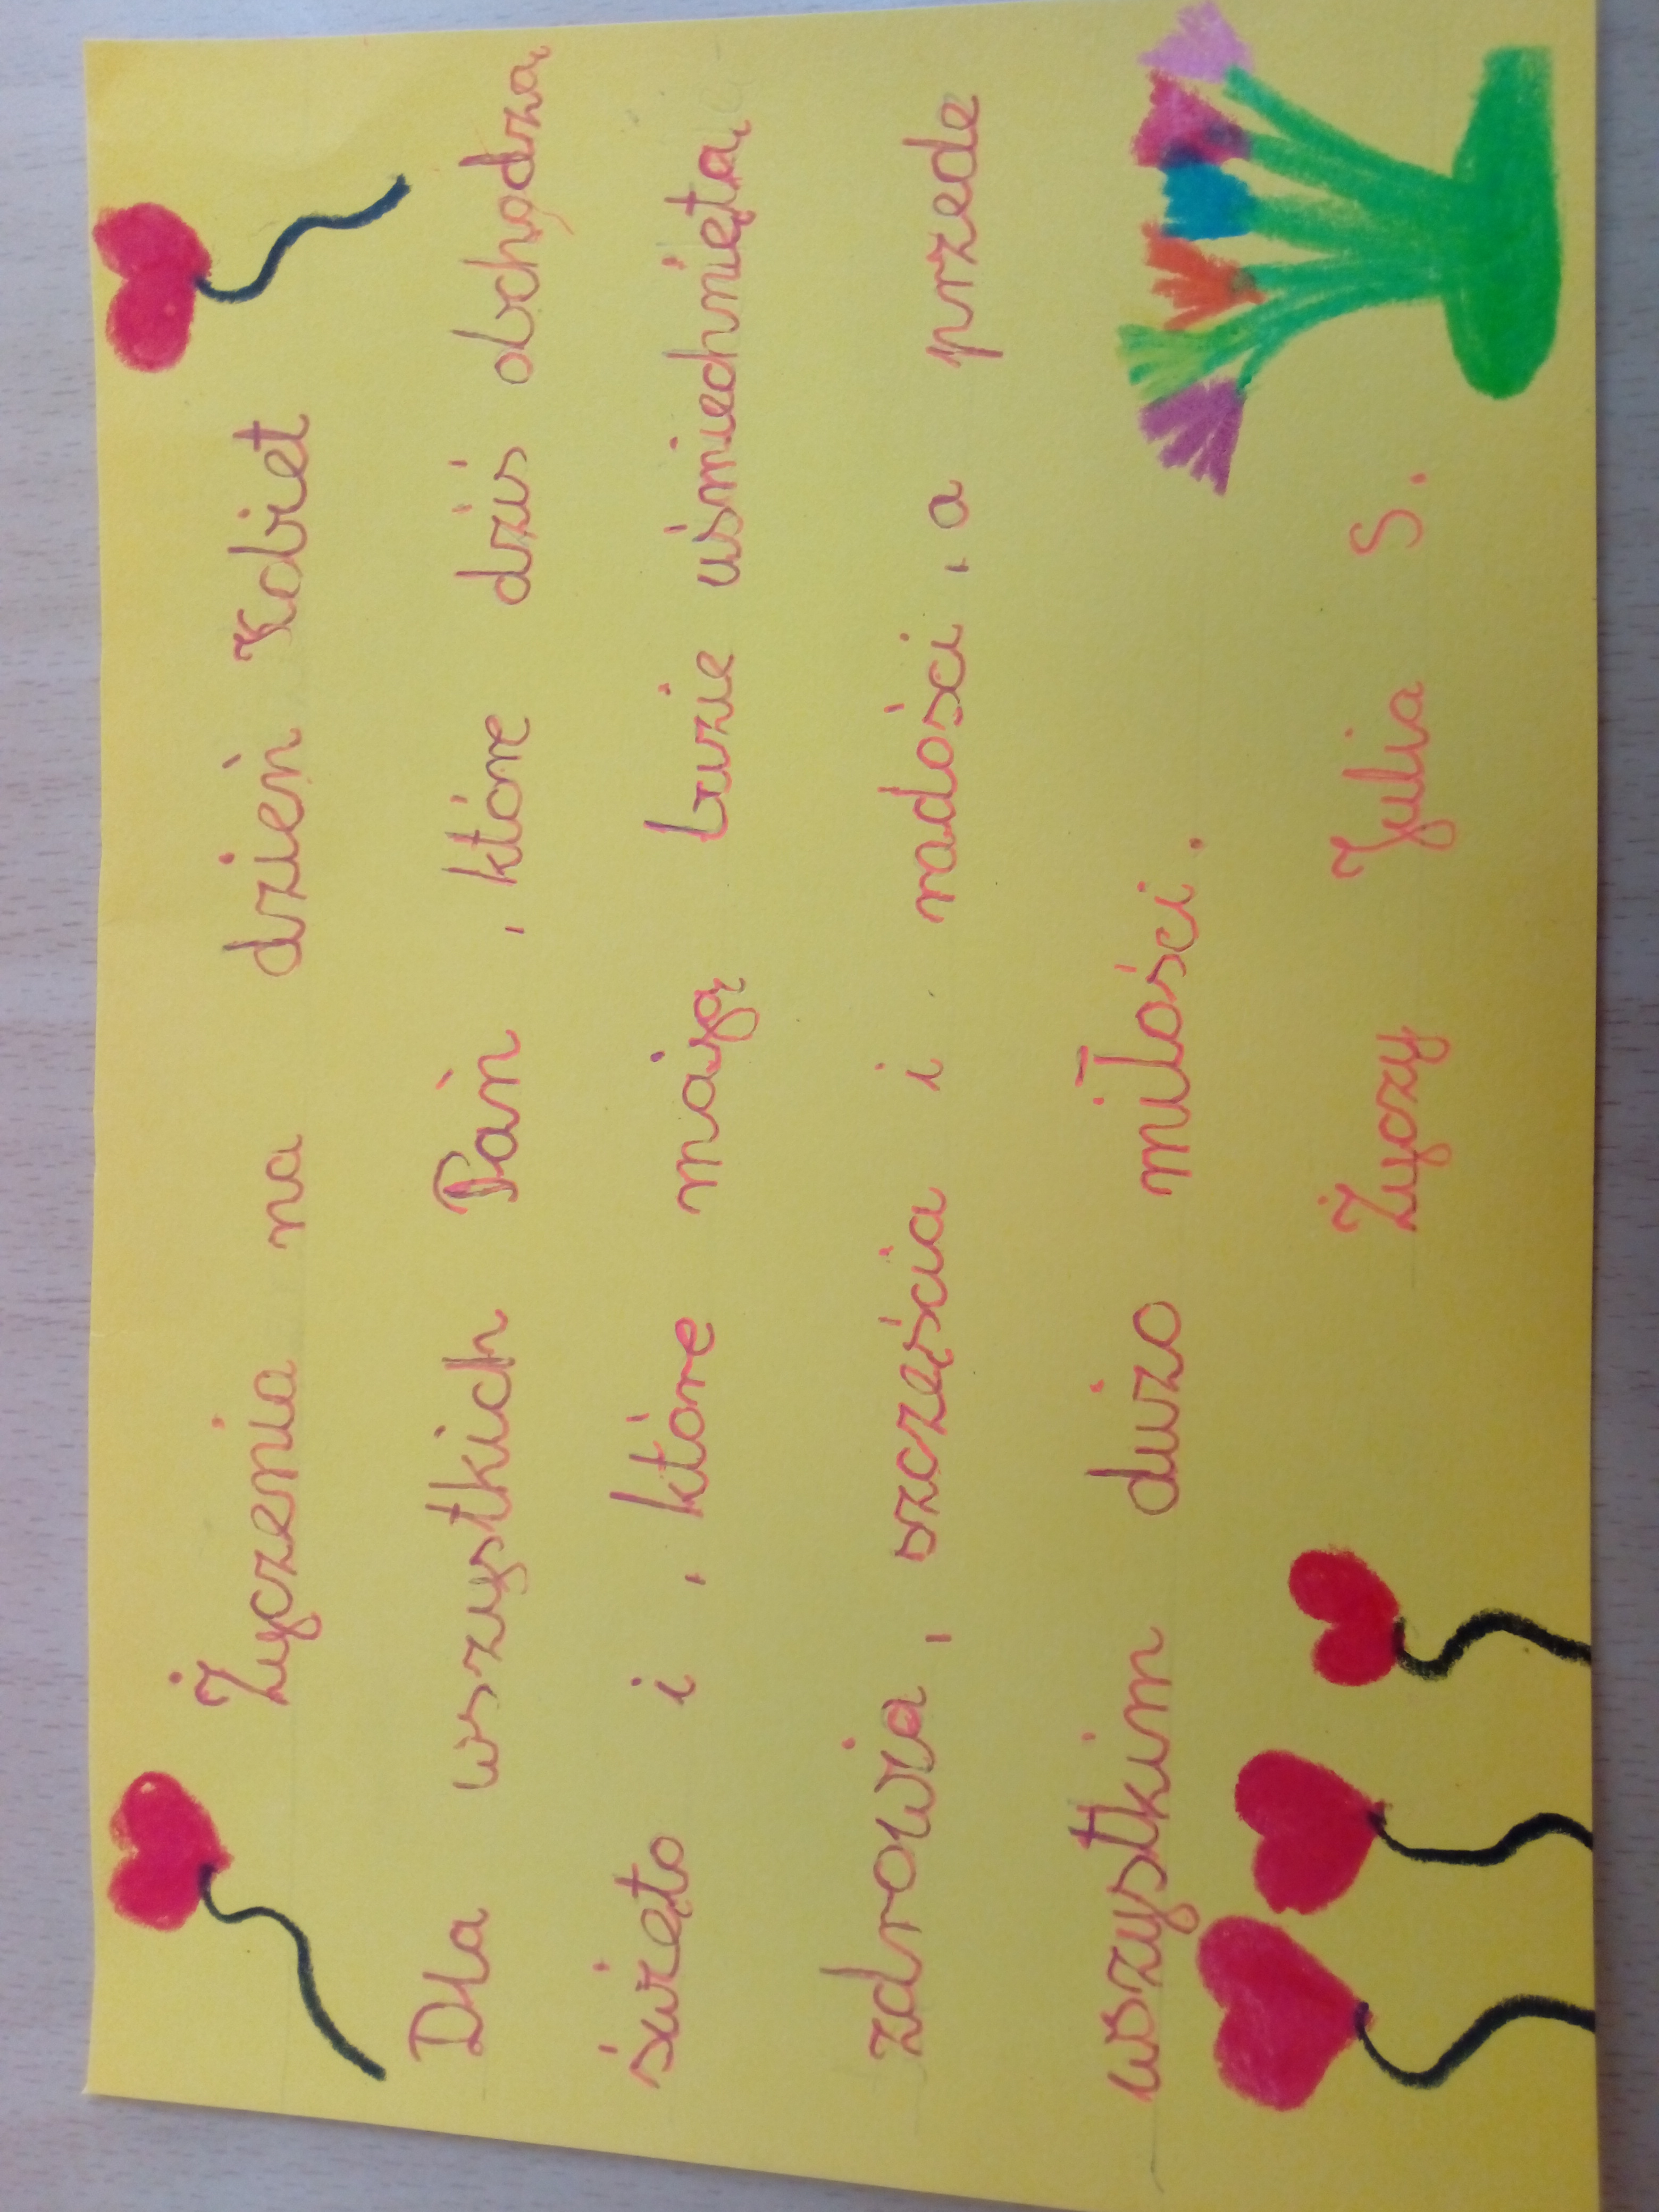 Życzenia na dzień Kobiet
Dla wszystkich Pań, które dziś obchodzą
święto i, które mają buzie uśmiechniętą,
zdrowia, szczęścia i radości, a przede
wszystkim dużo miłości.
Życzy Julia S.